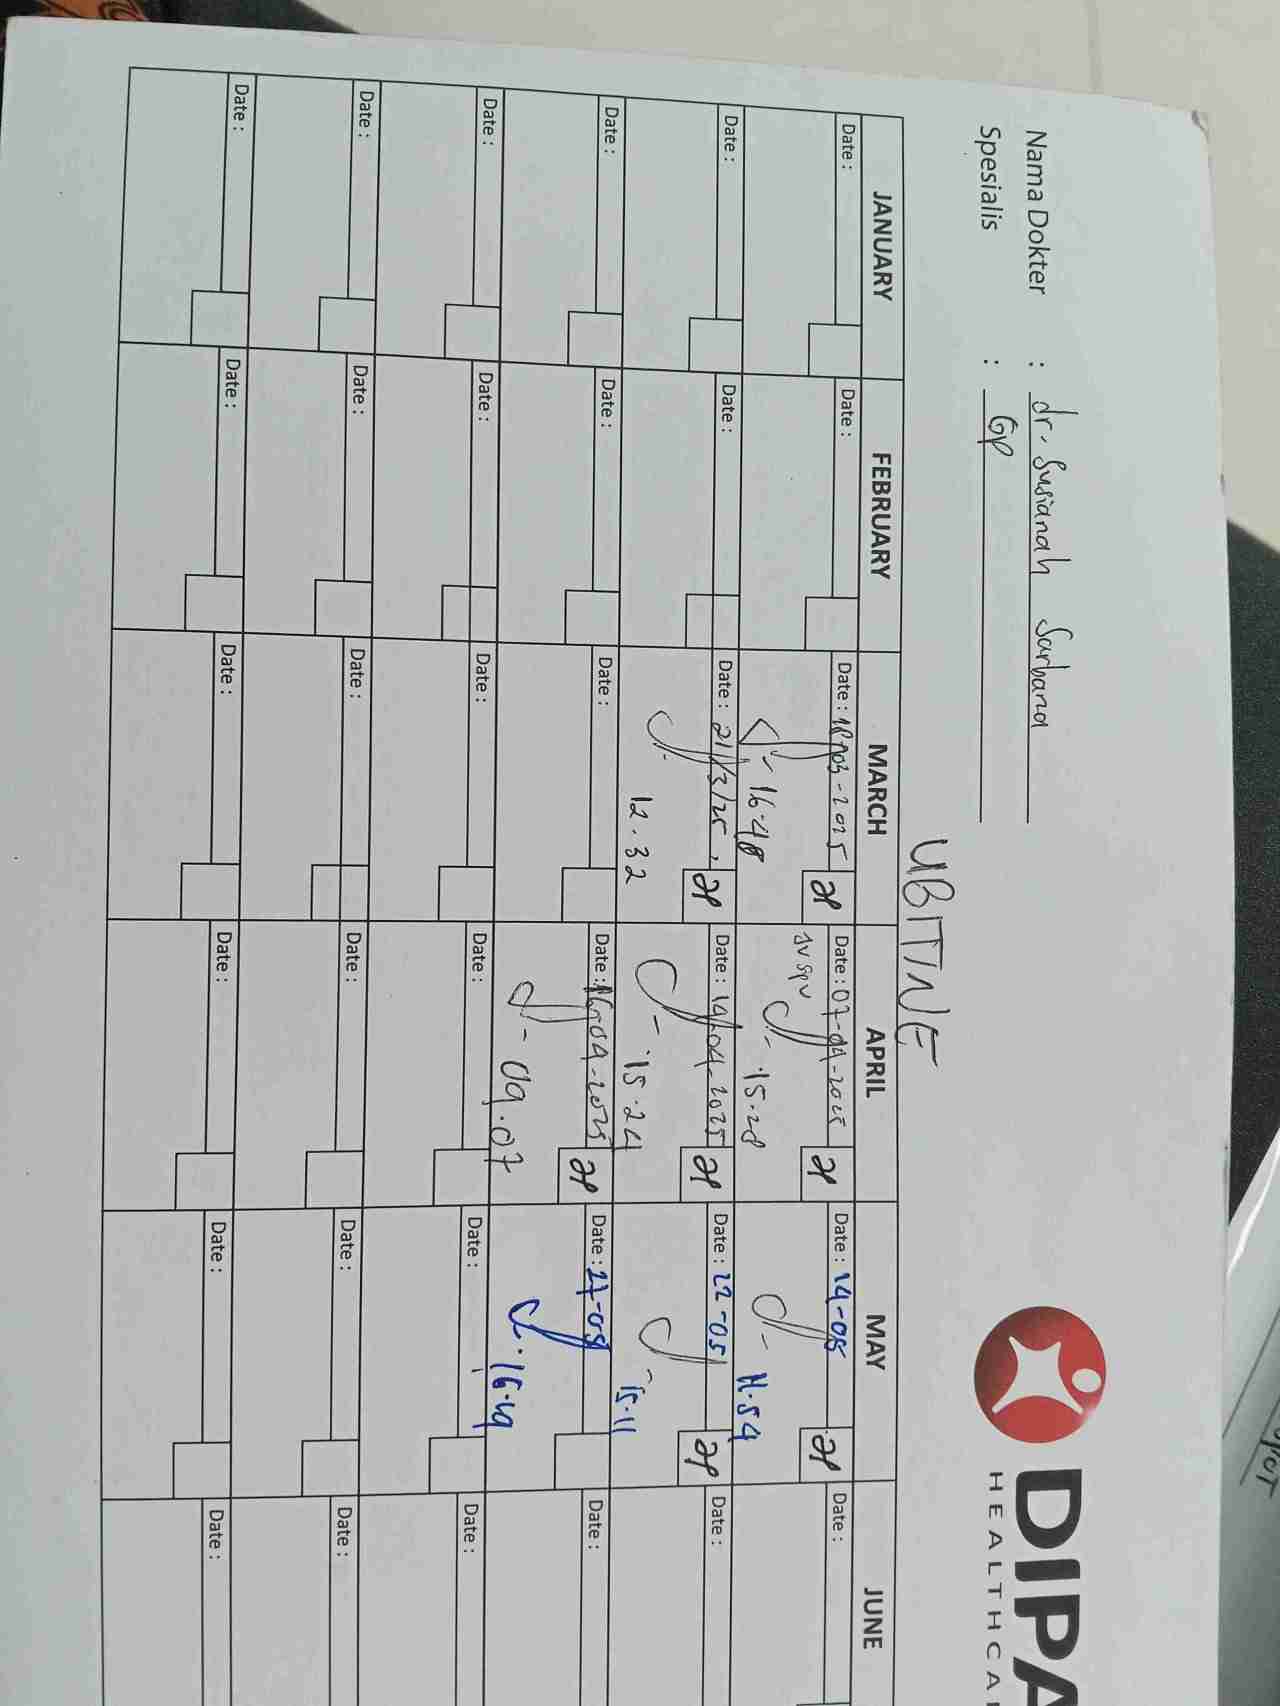 DIPA
HEALTHCA
Nama Dokter : dr. Susianah Sarbana
Spesialis : GP
UBITINE
JANUARY FEBRUARY MARCH APRIL MAY JUNE
Date : Date : Date : 18-03-2025 Date : 07-04-2025 Date : 14-05 Date :
16.48 JV SPV 15.28 11.54
Date : Date : Date : 21/3/25 Date : 14-04-2025 Date : 22-05 Date :
12.32 15.24 15.11
Date : Date : Date : Date : 16-04-2025 Date : 27-05 Date :
09.07 16.49
Date : Date : Date : Date : Date : Date :
Date : Date : Date : Date : Date : Date :
Date : Date : Date : Date : Date : Date :